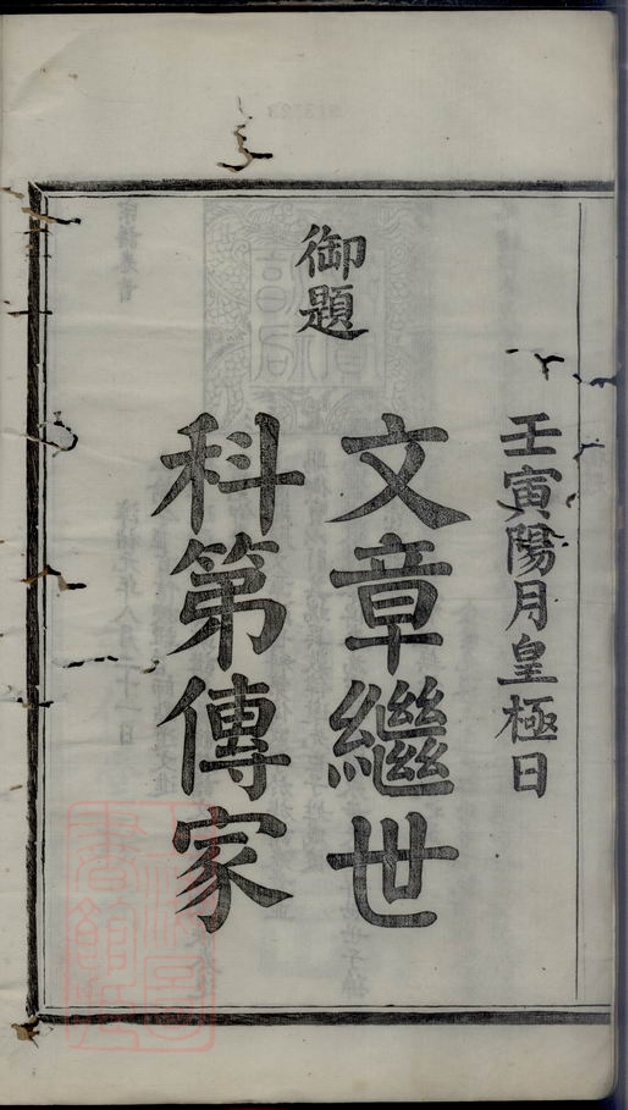 壬寅陽月皇極日
御題
文章繼世
科第傳家